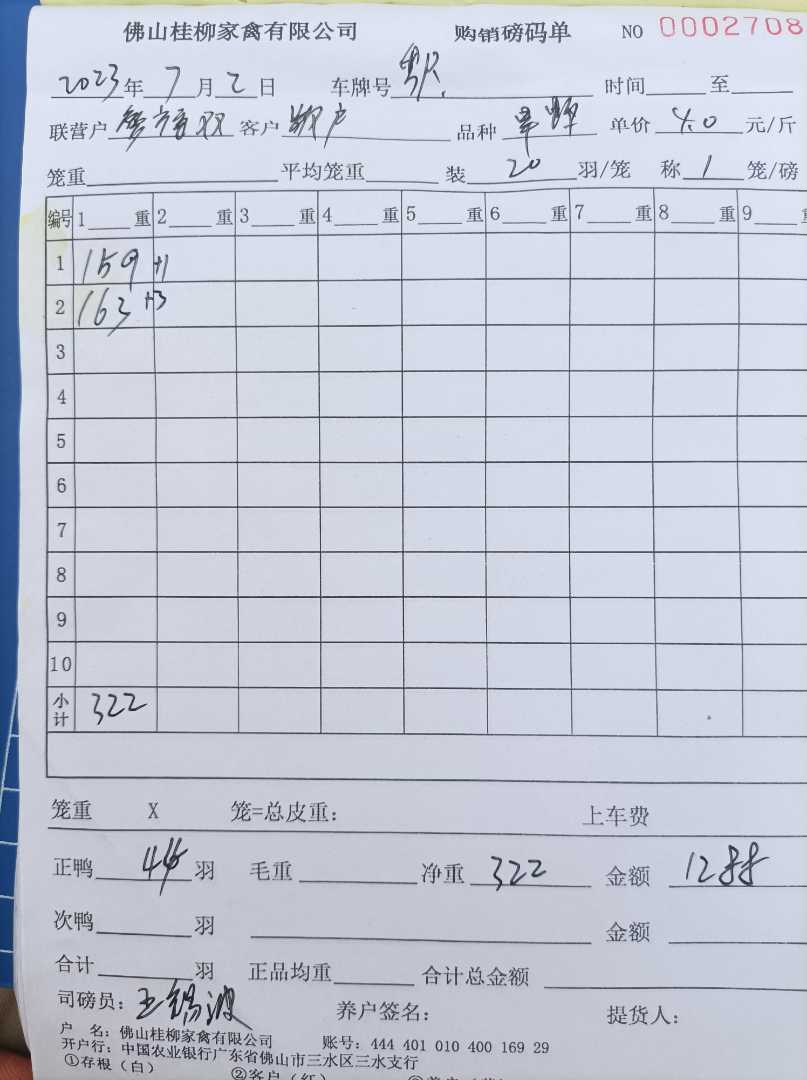 佛山桂柳家禽有限公司 购销磅码单 NO 0002708
2023年 7 月 2 日 车牌号 时间 至
联营户 客户 散户 品种 单价 4.0 元/斤
笼重 平均笼重 装 20 羽/笼 称 1 笼/磅
编号 1 重 2 重 3 重 4 重 5 重 6 重 7 重 8 重 9 重
1 159 +1
2 163 +3
3
4
5
6
7
8
9
10
小计 322
笼重 X 笼=总皮重: 上车费
正鸭 羽 毛重 净重 322 金额 1288
次鸭 羽 金额
合计 羽 正品均重 合计总金额
司磅员: 王锡波 养户签名: 提货人:
户 名: 佛山桂柳家禽有限公司 账号: 444 401 010 400 169 29
开户行: 中国农业银行广东省佛山市三水区三水支行
①存根(白) ②客户(红)